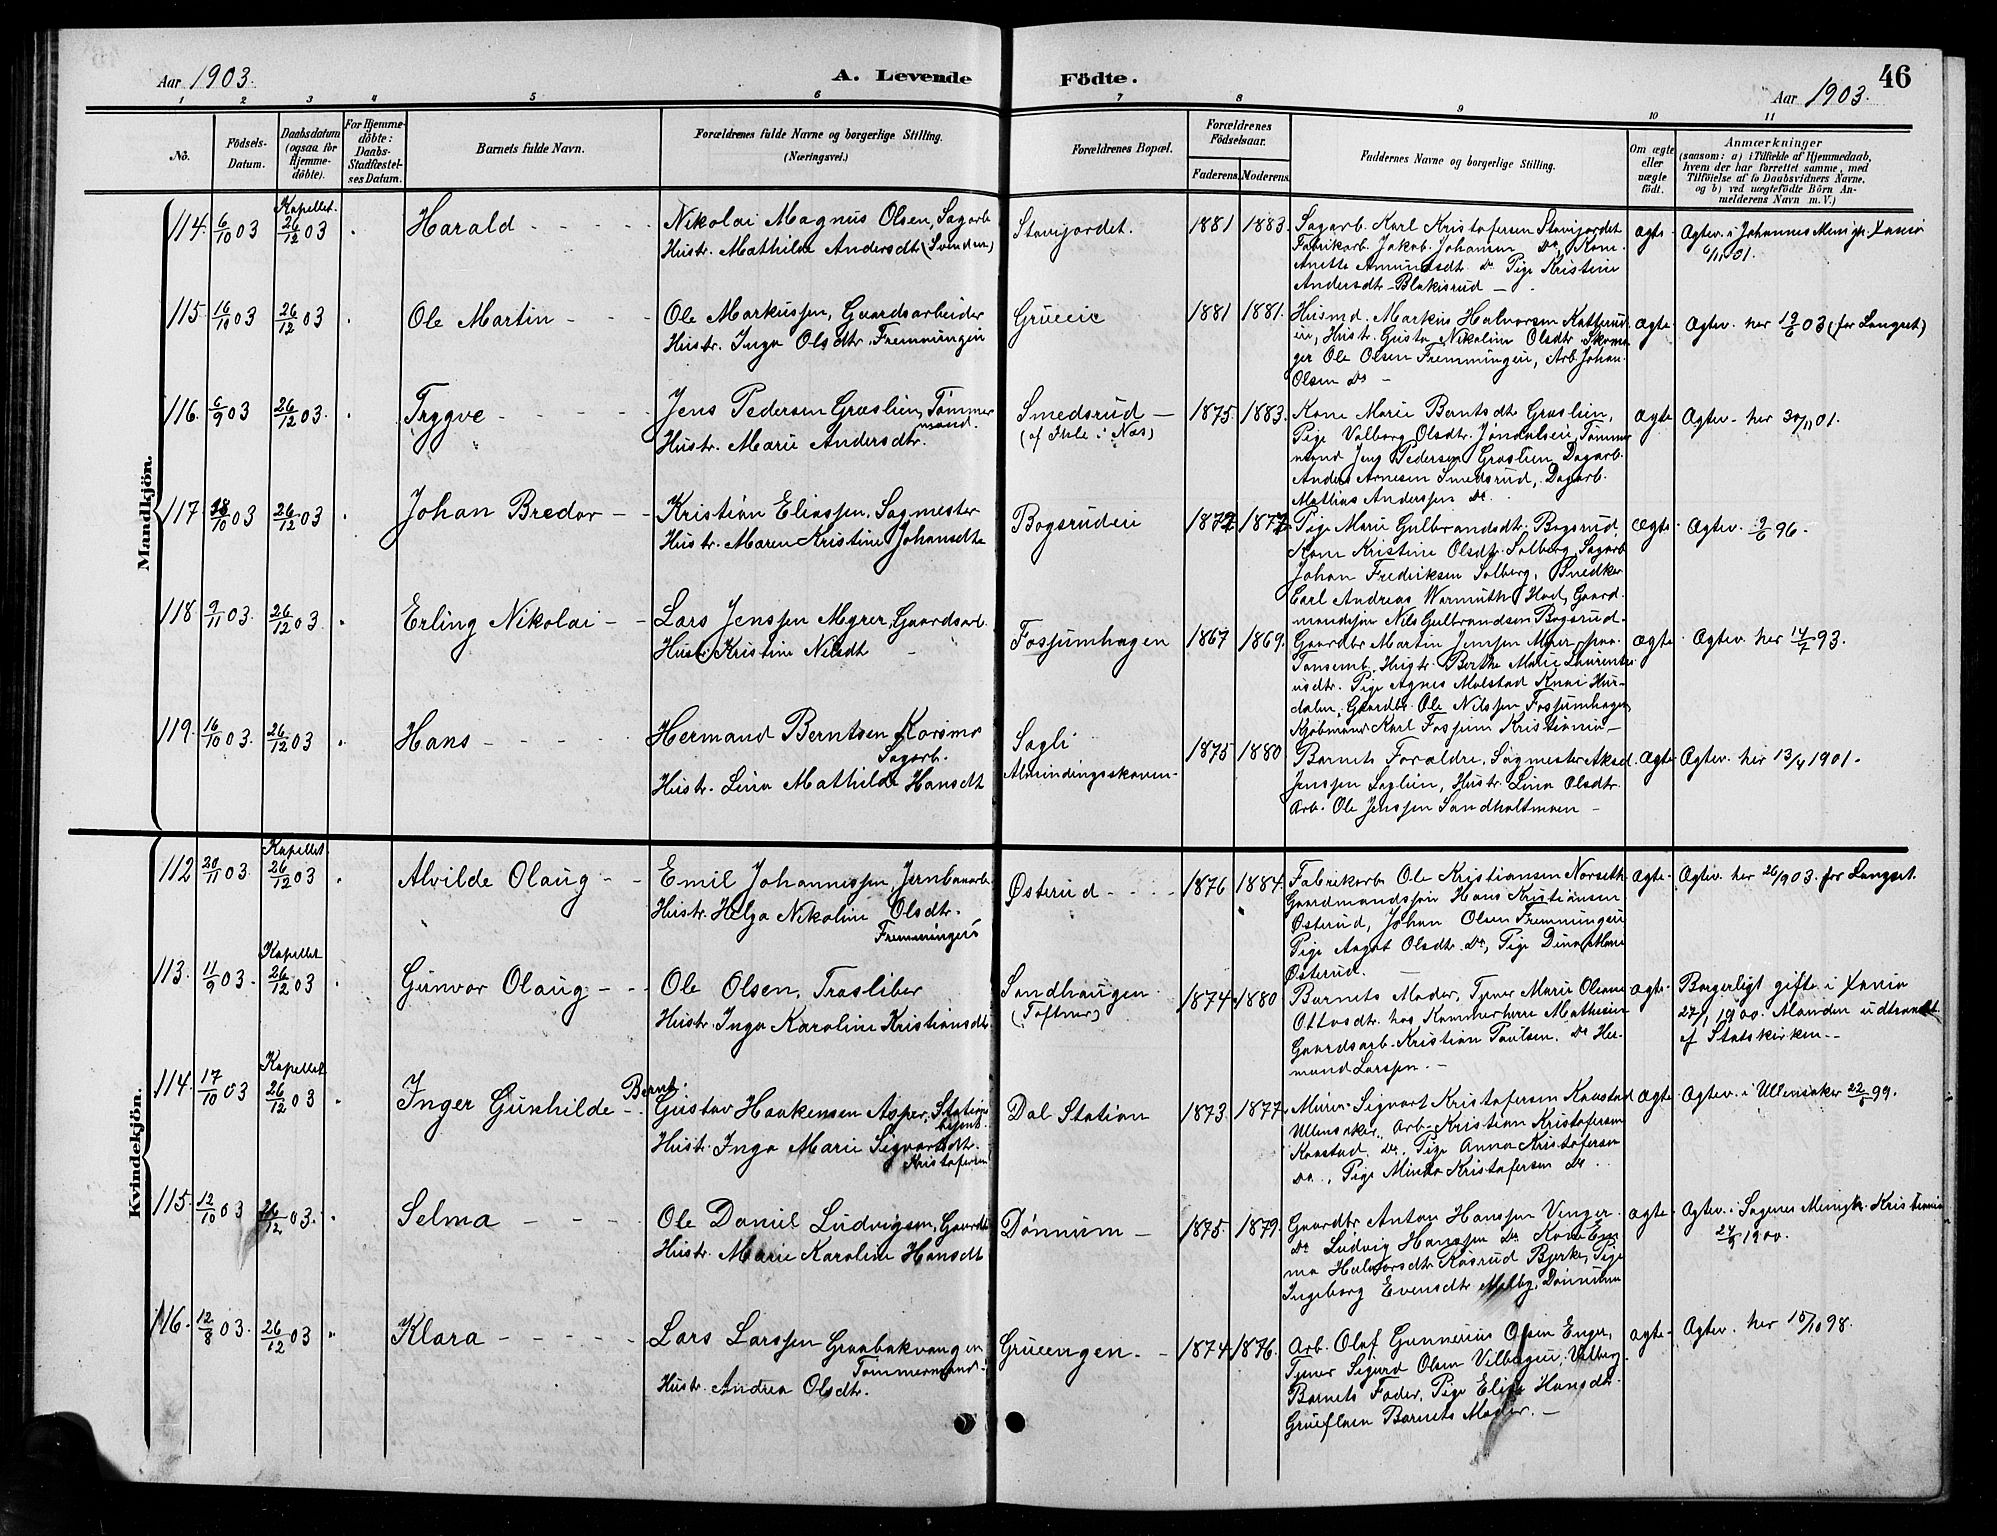 Aar 1903.
A. Levende Födte.
46
Aar 1903.
1 2 3 4 5 6 7 8 9 10 11
No.
Födsels-Datum.
Daabsdatum (ogsaa for Hjemme-döbte).
For Hjemme-döbte: Daabs-Stadfæstel-ses Datum.
Barnets fulde Navn.
Forældrenes fulde Navne og borgerlige Stilling.
(Næringsvei.)
Forældrenes Bopæl.
Forældrenes Födselsaar.
Faderens. Moderens.
Faddernes Navne og borgerlige Stilling.
Om ægte eller uægte födt.
Anmærkninger
(saasom: a) i Tilfælde af Hjemmedaab,
hvem der har forrettet samme, med
Tilföielse af to Daabsvidners Navne,
og b) ved uægtefödte Börn An-
melderens Navn m. V.)
Mandkjön.
114. 6/10 03 Kapellet. 26/12 03 Harald
Nikolai Magnus Olsen, Sagarb
Hustr. Mathilde Andersdt (Svenden)
Stavijordet. 1881 1883.
Sagarb. Karl Kristofersen Stavijordet
Fabrikarb. Jakob Johansen Do, Kone
Anette Amundsdt. Do Pige Kristine
Andersdt. Blakisrud
ægte Ægtev. i Johannes Menigh. Xania
6/11 01.
115. 16/10 03 26/12 03 Ole Martin
Ole Markussen, Gaardsarbeider
Hustr. Inga Olsdtr. Fremmingeii
Grueeie 1881 1881.
Husmd. Markus Halvorsen Katterud
eie, Hustr. Gusta Nikoline Olsdtr. Skoma
ger Ole Olsen Fremmingeii, Arb. Johan
Olsen Do
ægte Ægtev. her 19/6 03 (for Langset)
116. 6/9 03 26/12 03. Tryggve
Jens Pedersen Græslien, Tømmer
mand.
Hustr. Marie Andersdtr.
Smedsrud
(af Ihle i Næs)
1875. 1883.
Kone Marie Berntsdt. Græslien,
Pige Valborg Olsdtr. Jøndalseie, Tømmer
mand Jens Pedersen Græslien, Dagarb.
Anders Arnesen Smedsrud, Dagarb.
Mathias Anderssen Do.
ægte Ægtev. her 30/11 01.
117. 18/10 03 26/12 03 Johan Bredar
Kristian Eliassen, Sagmester
Hustr. Maren Kristine Johansdt
Bogsrudeii 1872 1877
Pige Marie Gulbrandsdt. Bogsrud,
Kone Kristine Olsdtr. Solberg, Sagarb
Johan Fredriksen Solberg, Snedker
Carl Andreas Warmuth Hod, Gaard
mandsøn Nils Gulbrandsen Bogsrud
ægte Ægtev. 2/6 96.
118 9/11 03 26/12 03. Erling Nikolai
Lars Jenssen Myrer, Gaardsarb.
Hustr. Kristine Nilsdt
Fosjumhagen 1867 1869.
Gaardbr Martin Jenssen Myrer paa
Tønsemb, Hustr. Berthe Marie Laurents
usdtr. Pige Agnes Malstad Knai Hur-
dalen, Gaardbr. Ole Nilssen Fosjumhagen
Kjøbmand Karl Fosjum Kristiania
ægte Ægtev. her 14/7 93.
119. 16/10 03. 26/12 03 Hans
Hermand Berntsen Korsmo
Sagarb.
Hustr. Lina Mathilde Hansdt
Sagli
Almindingsskoven
1875 1880
Barnets Forældre, Sagmester Aksel
Jenssen Saglien, Hustr. Lina Olsdtr.
Arb. Ole Jenssen Sandholtmoen
Ægte Ægtev. her 13/4 1901.
Kvindekjön.
112 20/11 03 Kapellet 26/12 03 Alvilde Olaug
Emil Johannessen, Jernbanearb
Hustr. Helga Nikoline Olsdtr.
Fremmingeii
Østerud 1876 1884.
Fabrikarb Ole Kristiansen Norseth
Gaardmandsøn Hans Kristiansen
Østerud, Johan Olsen Fremmingeii
Pige Aagot Olsdtr. Do, Pige Dina Marie
Østerud.
ægte Ægtev. her 26/9 03. for Langset.
113. 11/9 03. Kapellet 26/12 03 Gunvor Olaug
Ole Olsen, Træsliber
Hustr. Inga Karoline Kristiansdt
Sandhaugen
(Toftner)
1874. 1880
Barnets Moder, Tyner Marie Oleane
Ottosdtr. hos Kammerherre Mathiesen
Gaardsarb. Kristian Paulsen. Do Her-
mand Larssen.
ægte Borgerligt gifte i Xania
27/1 1900. Manden udtraadt
af Statskirken.
114. 17/10 03 Kapellet 26/12 03 Inger Gunhilde
Bernt. Gustav Haakensen Asper, Stations
betjent.
Hustr. Inga Marie Sigvartsdtr.
Kristofersen
Dal Station 1873. 1877.
Murer Sigvart Kristofersen Kaastad
Ullensaker, Arb. Kristian Kristofersen
Kaastad, Do, Pige Anna Kristofersen
Do, Pige Minda Kristofersen Do.
ægte Ægtev. i Ullensaker 22/6 99.
115. 12/10 03 26/12 03. Selma
Ole Daniel Ludvigsen, Gaardb
Hustr. Marie Karoline Hansdt
Dønnum 1875. 1879.
Gaardbr Anton Hanssen Vinger.
Do Ludvig Hanssen Do Kone Em
ma Halvorsdtr. Kaasrud Bjerke, Pige
Ingeborg Evensdtr. Melby, Dønnum
ægte Ægtev. i Sagenes Menigh. Kristiania
24/9 1900.
116. 12/8 03. 26/12 03 Klara
Lars Larssen Graabakvangen
Tømmermand.
Hustr. Andrea Olsdtr.
Grueengen. 1874. 1876.
Arb. Olaf Gunnerius Olsen Enger,
Tyner Sigurd Olsen Vilbergeie, Valberg
Barnets Fader, Pige Elise Hansdtr.
Grueflaen Barnets Moder.
ægte Ægtev. her 15/10 98.